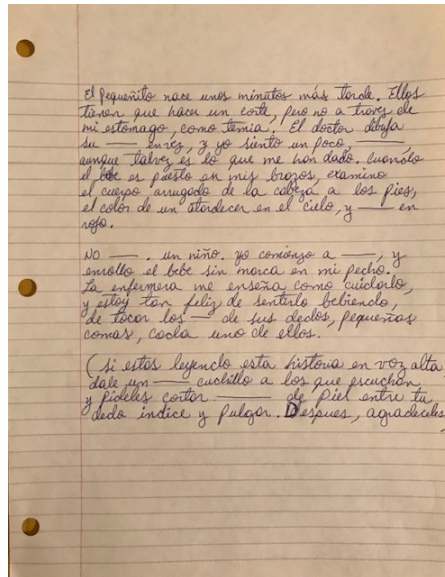 El Pequeñito nace unos minutos más tarde. Ellos
tienen que hacer un corte, pero no a traves de
mi estomago, como temia. El doctor dibuja
su ___ en vez, y yo siento un poco, ___,
aunque talvez es lo que me han dado. Cuando
el bebe es puesto en mis brazos, examino
el cuerpo arrugado de la cabeza a los pies,
el color de un atardecer en el cielo, y ___ en
rojo.
NO ___. un niño. yo comienzo a ___, y
enrollo el bebe sin marca en mi pecho.
La enfermera me enseña como cuidarlo,
y estoy tan feliz de sentirlo bebiendo,
de tocar los ___ de sus dedos, pequeñas
comas, cada uno de ellos.
(si estas leyendo esta historia en voz alta
dale un ___ cuchillo a los que escuchan
y pideles cortar ___ de piel entre tu
dedo indice y pulgar. Despues, agradeceles